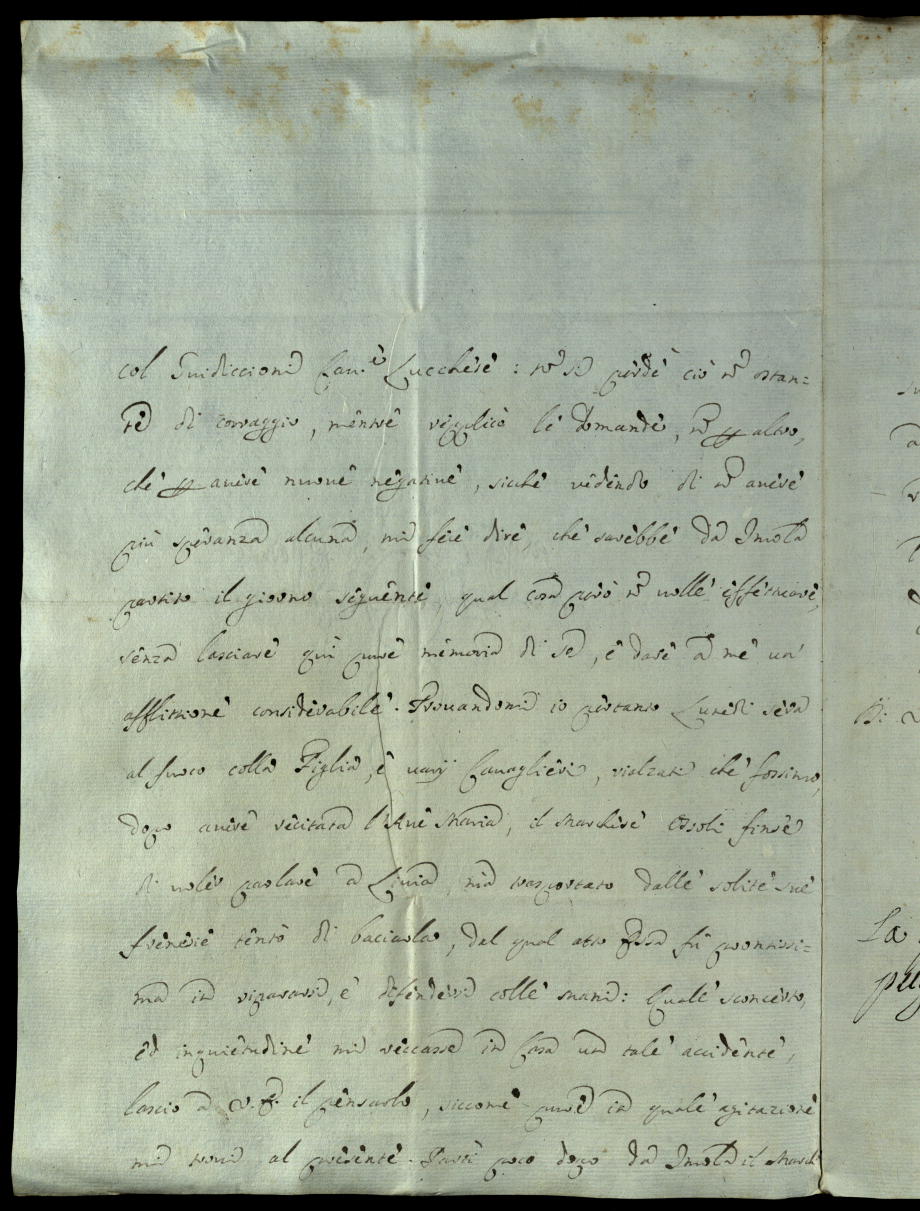 col Guidiccioni Cau.e Lucchese: no si perdè ciò nō ostan=
te di corraggio, mentre replicò le domande, nō p altro,
che p auere nuoue negatiue, sichè vedendo di nō auere
più speranza alcuna, mi fece dire, che sarebbe da Imola
partito il giorno seguente, qual cosa però nō volle effettuare,
senza lasciare qui pure memoria di se, e dare a me un'
afflizione considerabile. Trouandomi io pertanto Lunedì sera
al fuoco colla Figlia, e varij Caualieri, rialzati che fossimo,
dopo auere recitata l'Aue Maria, il Marchese Assoli finse
di voler parlare a Liuia, mà trasportato dalle solite sue
frenesie tentò di baciarla, dal qual atto essa fù prontissi=
ma in ripararsi, e difendersi colle mani: Quale sconcerto,
ed inquietudine mi reccasse in Casa un tale accidente,
lascio a V.E. il pensarlo, siccome pure in quale agitazione
mi troui al presente. Partì poco dopo da Imola il March
La